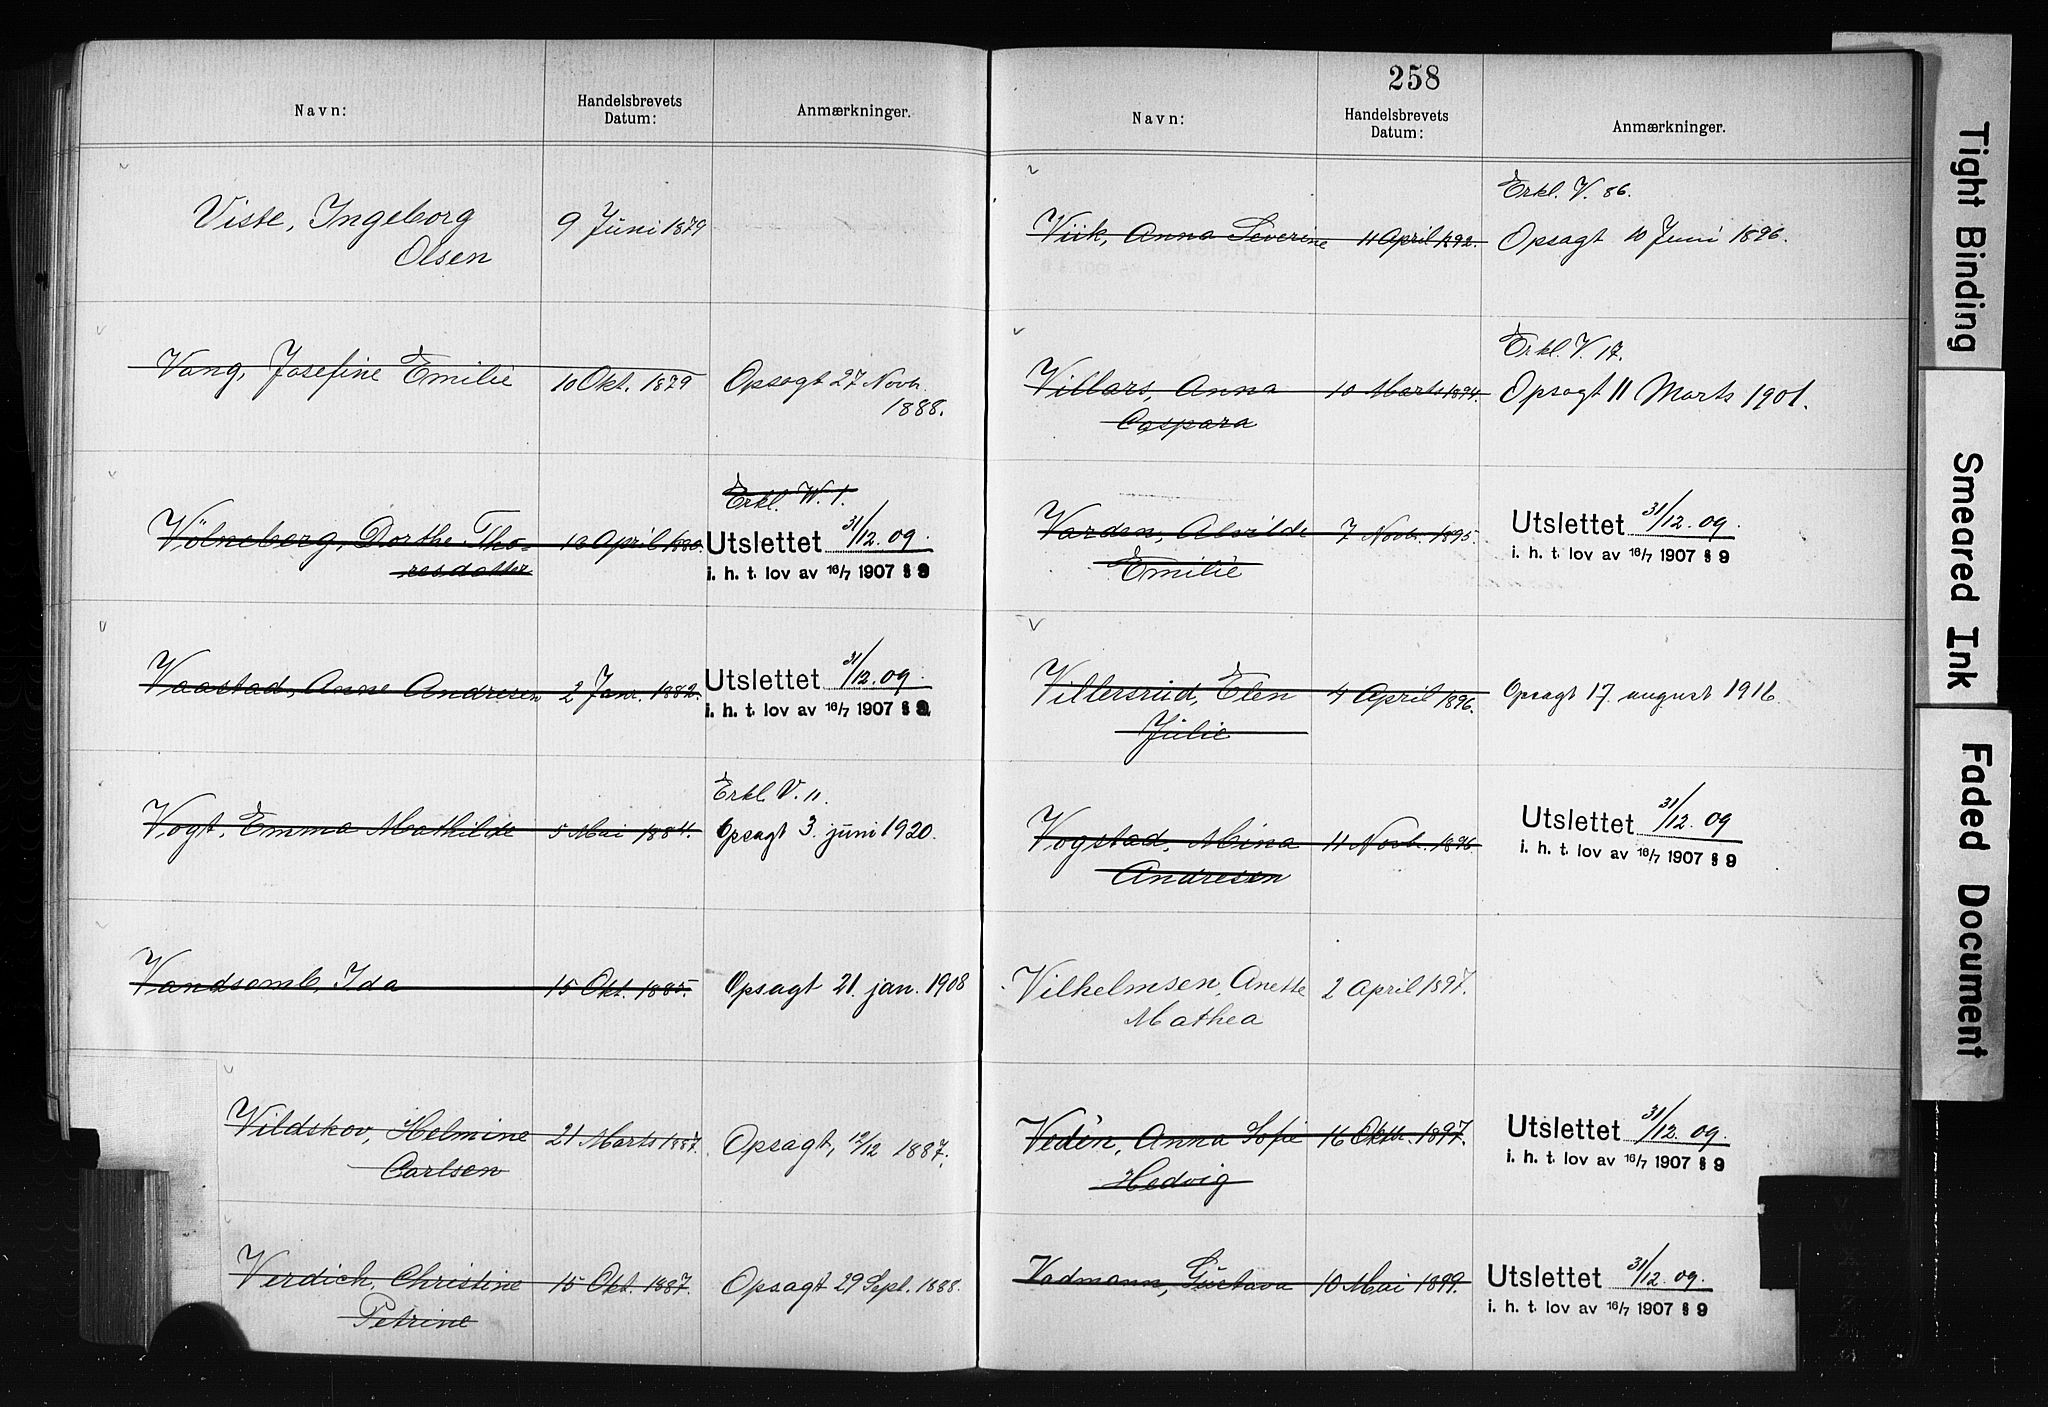 Navn:
Handelsbrevets
Datum:
Anmærkninger.
Viste, Ingeborg
Olsen
9 Juni 1879
Vang, Josefine Emilie
10 Okt. 1879
Opsagt 27 Novb.
1888.
Völneberg, Dorthe Tho-
resdatter
13 April 1880.
Erkl. W. 1.
Utslettet 31/12.09.
i. h. t. lov av 16/7 1907 § 9
Vaastad, Anne Andresen
2 Janr. 1882.
Utslettet 31/12.09.
i. h. t. lov av 16/7 1907 § 9
Vogt, Emma Mathilde
5 Mai 1884.
Erkl. V. 11.
Opsagt 3. juni 1920.
Vandsemb, Ida
15 Okt. 1885.
Opsagt 21. jan. 1908
Vildskov, Helmine
Carlsen
21 Marts 1887.
Opsagt, 12/12 1887.
Verdich, Christine
Petrine
15 Okt. 1887.
Opsagt 29 Sept. 1888.
258
Navn:
Handelsbrevets
Datum:
Anmærkninger.
Viik, Anna Severine
11 April 1892.
Erkl. V. 86.
Opsagt 10 Juni 1896.
Villars, Anna
Caspara
10 Marts 1894.
Erkl. V. 17.
Opsagt 11 Marts 1901.
Varden, Alvilde
Emilie
7 Novbr. 1895.
Utslettet 31/12.09.
i. h. t. lov av 16/7 1907 § 9
Villersrud, Elen
Julie
4 April 1896.
Opsagt 17. august 1916.
Vogstad, Mina
Andresen
11 Novb. 1896.
Utslettet 31/12.09
i. h. t. lov av 16/7 1907 § 9
Vilhelmsen, Anette
Mathea
2 April 1897.
Vedên, Anna Sofie
Hedvig
16 Oktbr. 1897.
Utslettet 31/12.09.
i. h. t. lov av 16/7 1907 § 9
Vadmann, Gustava
10 Mai 1899.
Utslettet 31/12.09.
i. h. t. lov av 16/7 1907 § 9
Tight Binding
Smeared Ink
Faded Document